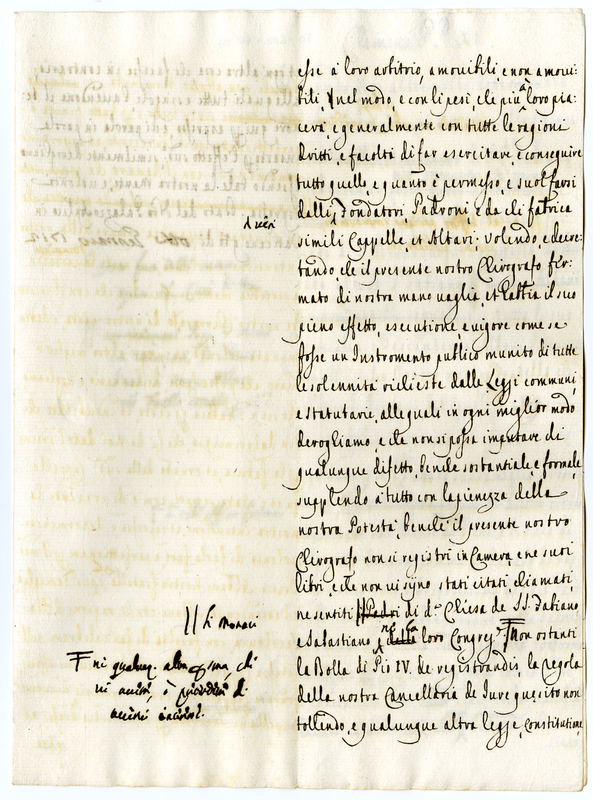 esse à loro arbitrio, amovibili, e non amovi-
bili, nel modo, e con li pesi, che più à loro pia-
cerà, e generalmente con tutte le ragioni
dritti, e facoltà di far esercitare, e conseguire
tutto quello, e quanto è permesso, e suol farsi
dalli veri Fondatori, Padroni, e da chi fabrica
simili Cappelle, et Altari; volendo, e decre-
tando, che il presente nostro Chirografo fir-
mato di nostra mano vaglia, et habbia il suo
pieno effetto, esecutione, e vigore come se
fosse un Instromento publico munito di tutte
le solennità richieste dalle Leggi communi,
e statutarie, alle quali in ogni miglior modo
deroghiamo, e che non si possa imputare di
qualunque difetto, benche sostantiale, e formale,
supplendo à tutto con la pienezza della
nostra Potestà, benche il presente nostro
Chirografo non si registri in Camera, e ne suoi
libri, e che non vi siino stati citati, chiamati,
ne sentiti Padri di d.ª Chiesa de SS. Fabiano,
e Sabastiano, ne la loro Congreg.ne Non ostanti
la Bolla di Pio IV. de registrandis, la regola
della nostra Cancellaria de Iure quesito non
tollendo, e qualunque altra legge, Constitutione
li Monaci
ne qualunq. altra